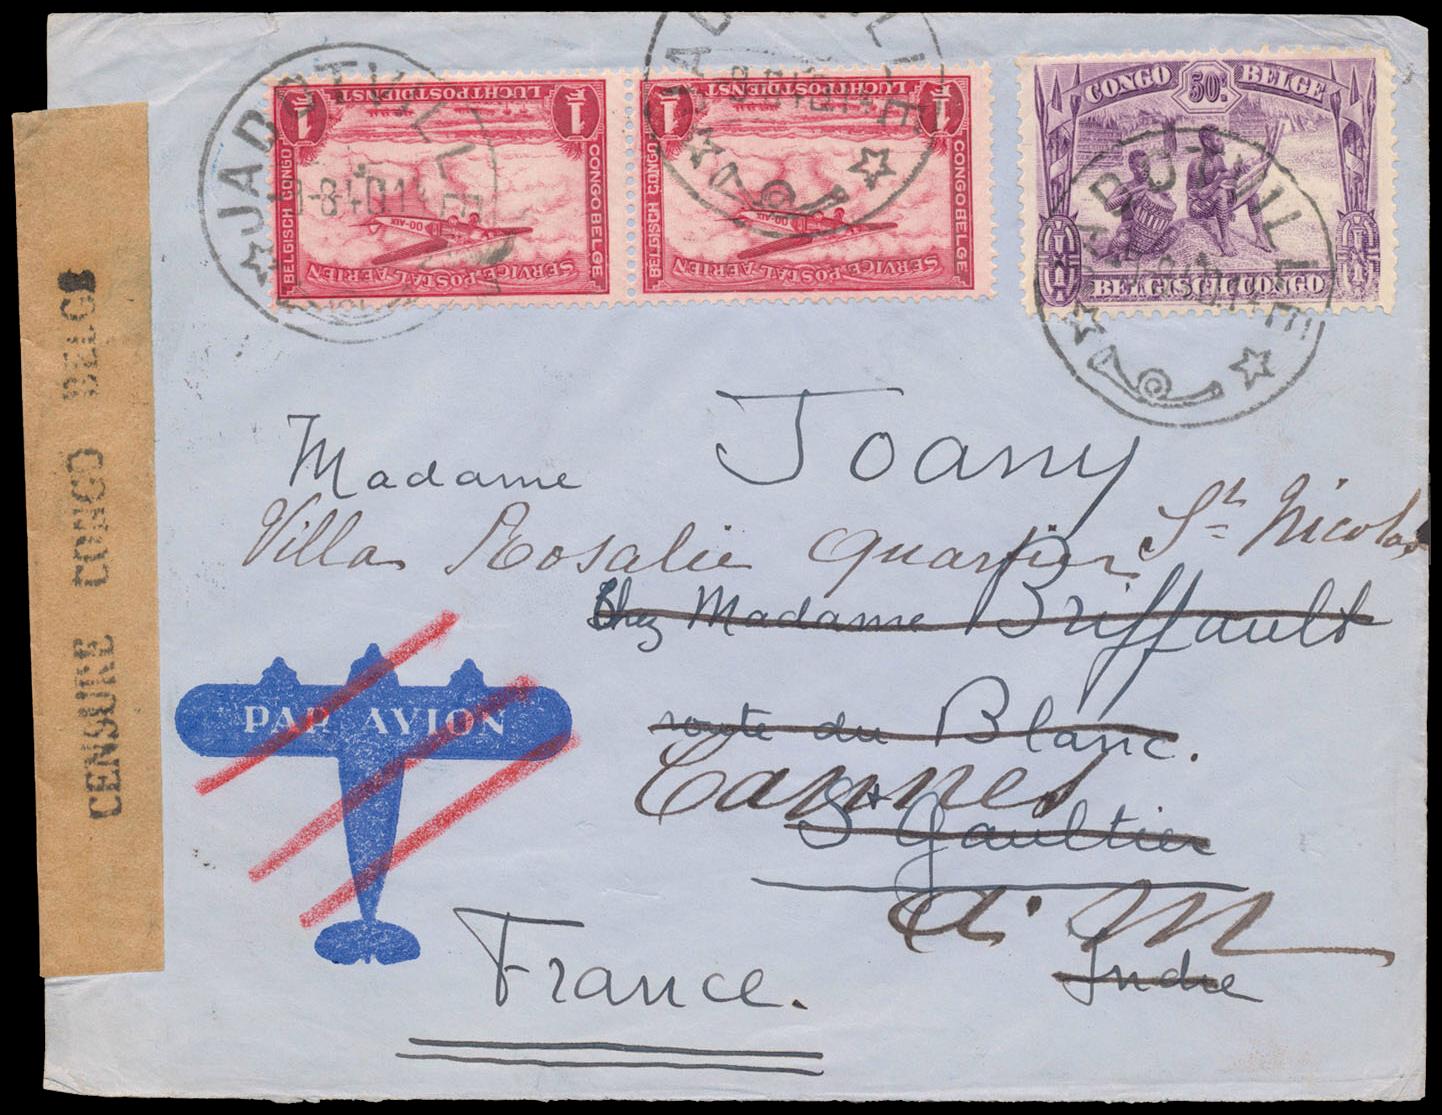 CENSURE CONGO BELGE
JADOTVILLE
LUCHTPOSTDIENST
1 F
BELGISCH CONGO
CONGO BELGE
SERVICE-POSTAL-AÉRIEN
OO-AIX
LUCHTPOSTDIENST
1 F
BELGISCH CONGO
CONGO BELGE
SERVICE-POSTAL-AÉRIEN
OO-AIX
JADOTVILLE
CONGO 50c. BELGE
BELGISCH CONGO
JADOTVILLE
Madame Joany
Villa Rosalie Quartier St Nicolas
Chez Madame Briffault
route du Blanc.
Cannes
St Gaultier
a. M
Indre
PAR AVION
France.